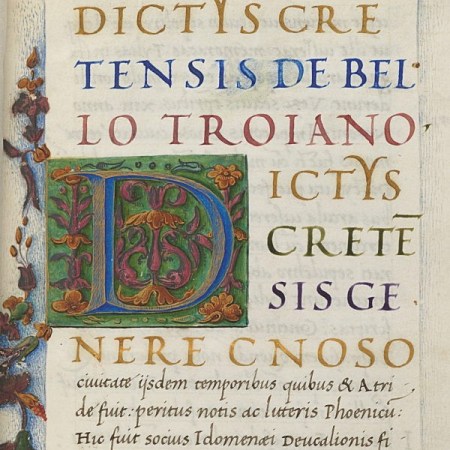 DICTYS CRE
TENSIS DE BEL
LIO TROIANO
DICTYS
CRETĒ
SIS GE
NERE GNOSO
ciuitate ijsdem temporibus quibus & Atri
de fuit: peritus notis ac luteris Phoenicū:
Hic fuit socius Idomenæi Deucalionis fi